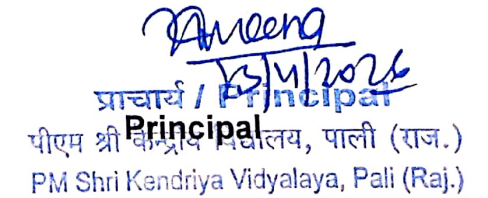 Ameena
13/4/2026
प्राचार्य / Principal
Principal
पीएम श्री केन्द्रीय विद्यालय, पाली (राज.)
PM Shri Kendriya Vidyalaya, Pali (Raj.)